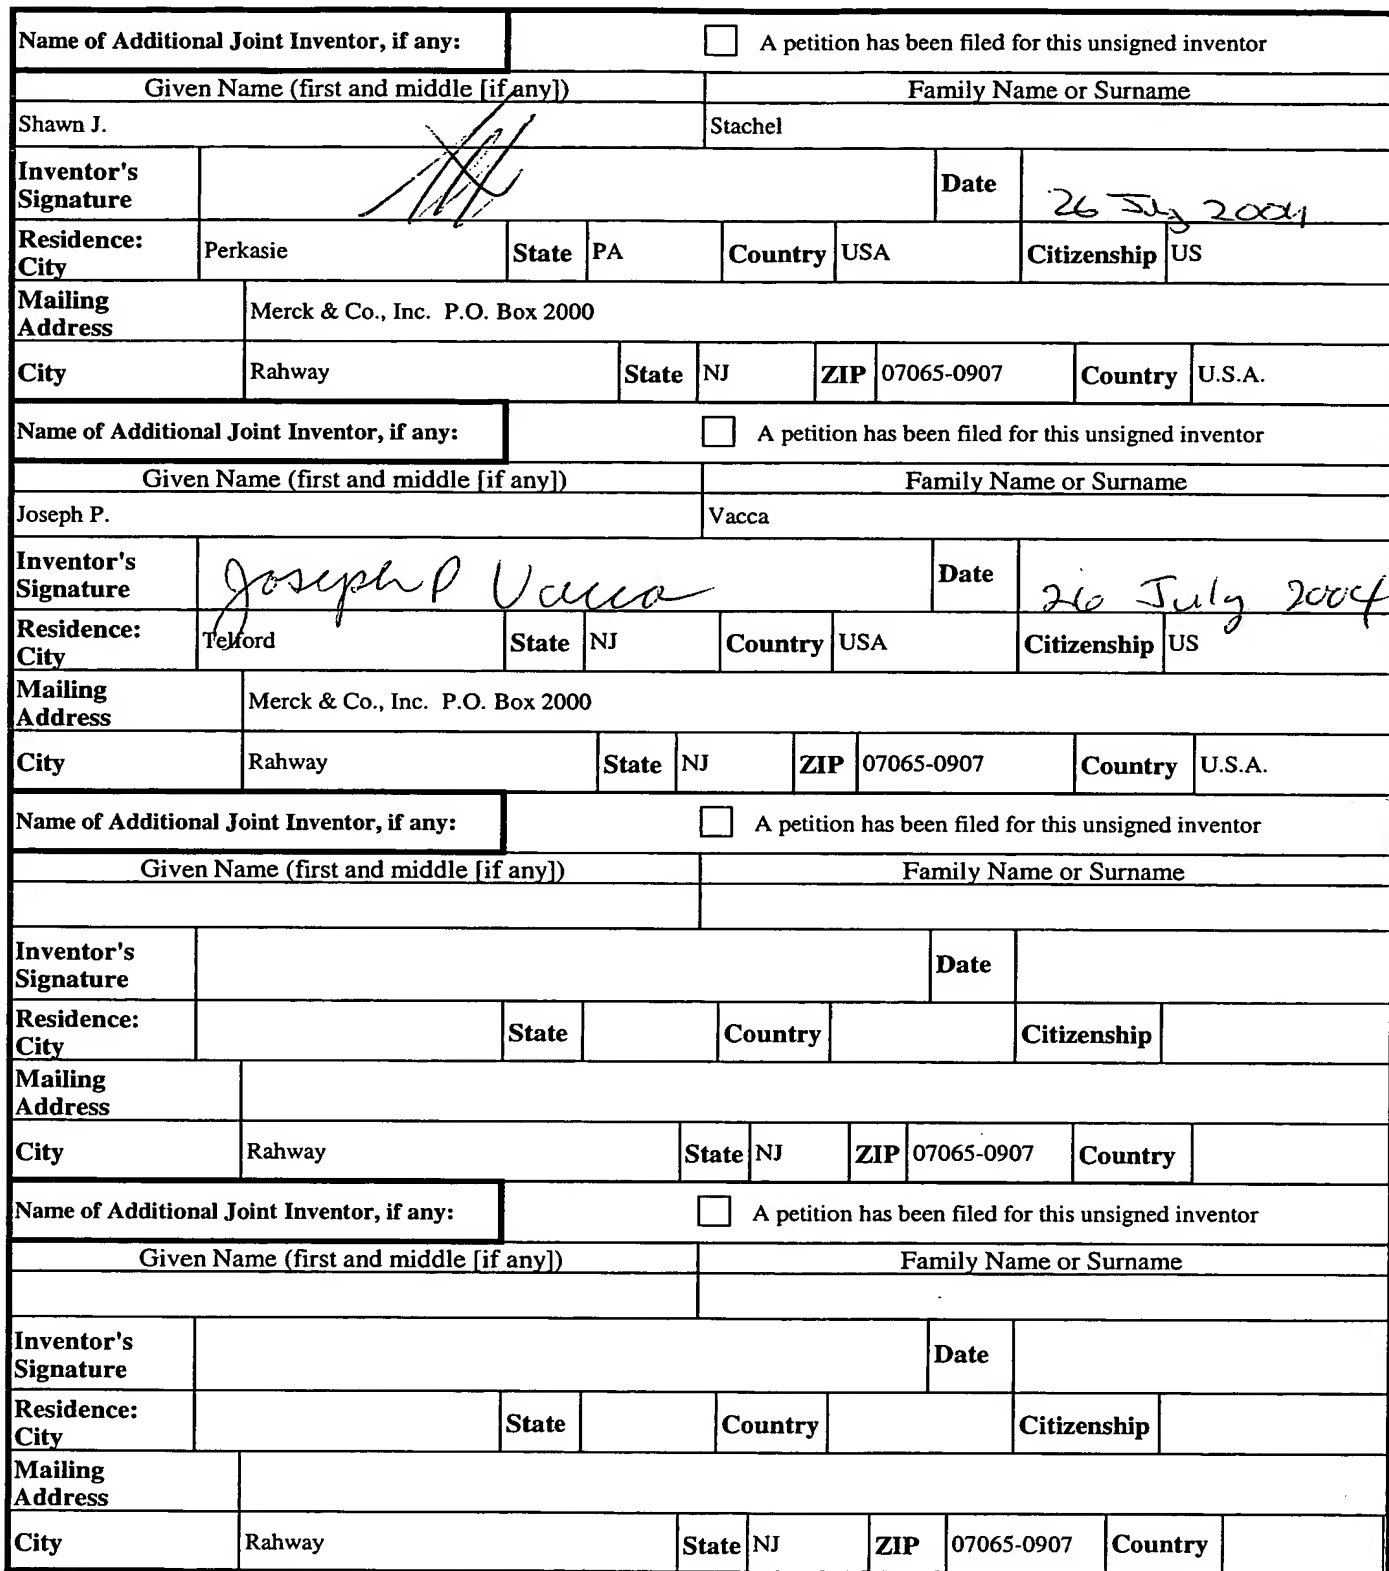 Name of Additional Joint Inventor, if any: A petition has been filed for this unsigned inventor
Given Name (first and middle [if any]) Family Name or Surname
Shawn J. Stachel
Inventor's Signature Date 26 July 2004
Residence: City Perkasie State PA Country USA Citizenship US
Mailing Address Merck & Co., Inc. P.O. Box 2000
City Rahway State NJ ZIP 07065-0907 Country U.S.A.
Name of Additional Joint Inventor, if any: A petition has been filed for this unsigned inventor
Given Name (first and middle [if any]) Family Name or Surname
Joseph P. Vacca
Inventor's Signature Joseph P Vacca Date 26 July 2004
Residence: City Telford State NJ Country USA Citizenship US
Mailing Address Merck & Co., Inc. P.O. Box 2000
City Rahway State NJ ZIP 07065-0907 Country U.S.A.
Name of Additional Joint Inventor, if any: A petition has been filed for this unsigned inventor
Given Name (first and middle [if any]) Family Name or Surname
Inventor's Signature Date
Residence: City State Country Citizenship
Mailing Address
City Rahway State NJ ZIP 07065-0907 Country
Name of Additional Joint Inventor, if any: A petition has been filed for this unsigned inventor
Given Name (first and middle [if any]) Family Name or Surname
Inventor's Signature Date
Residence: City State Country Citizenship
Mailing Address
City Rahway State NJ ZIP 07065-0907 Country